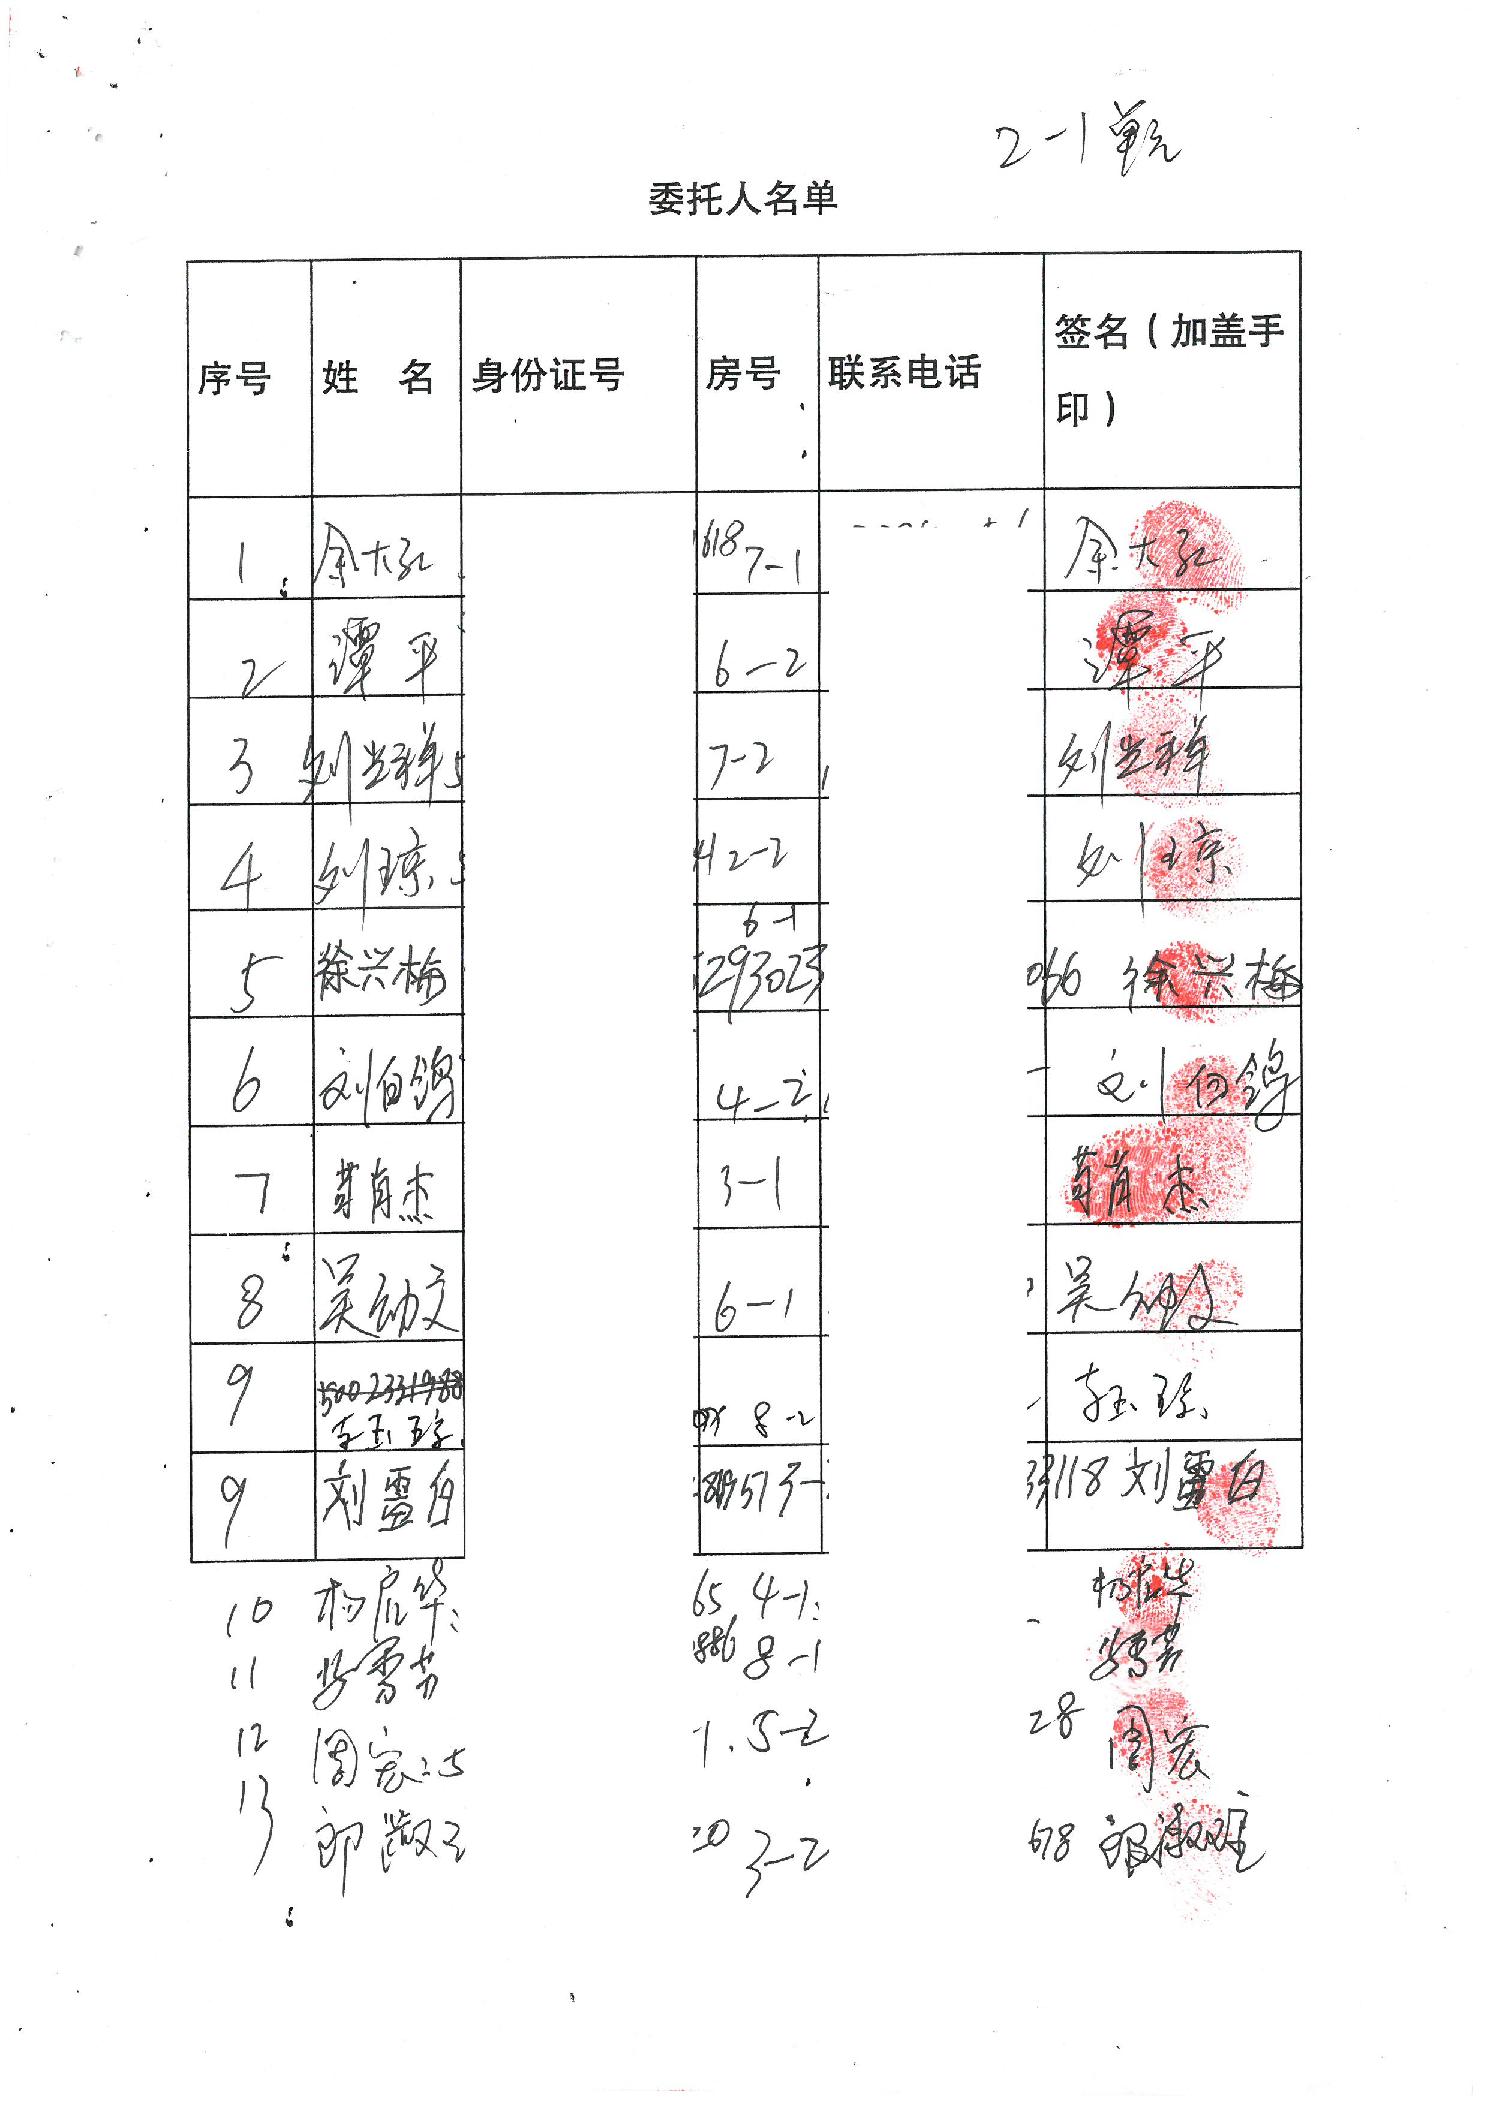 2-1单元
委托人名单
序号 姓 名 身份证号 房号 联系电话 签名（加盖手印）
1 余大红 1618 7-1 余大红
2 谭平 6-2 谭平
3 刘兰祥 7-2 刘兰祥
4 刘琼 2-2 刘琼
6-1
5 徐兴梅 293023 066 徐兴梅
6 刘白鸽 4-2 刘白鸽
7 肖杰 3-1 肖杰
8 吴幼文 6-1 吴幼文
9 5002331988
李玉琼 8-2 李玉琼
9 刘雪白 573- 118 刘雪白
10 杨启华 65 4-1 杨启华
11 雪芳 886 8-1 雪芳
12 周宏 5-2 28 周宏
13 郎 20 3-2 678 郎